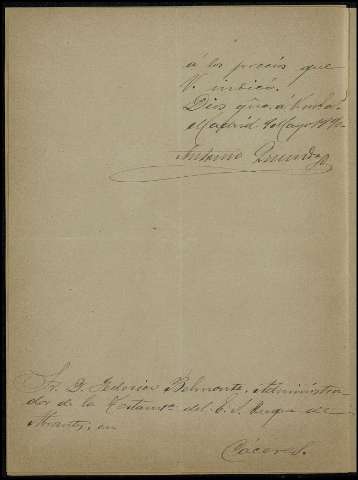 á los precios que
V. indica.
Dios gue. á V. m. a.
Madrid Mayo 189
Antonio
Sr. D. Federico Belmonte, Administra-
dor de la Testam.ª del E. S. Duque de
Abrantes, en
Cáceres.